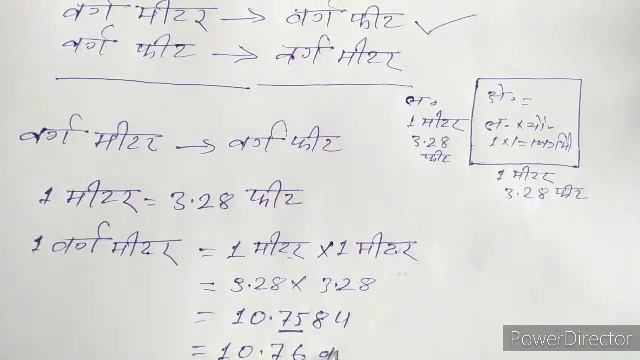 वर्ग मीटर → वर्ग फीट ✓
वर्ग फीट → वर्ग मीटर
वर्ग मीटर → वर्ग फीट
1 मीटर = 3.28 फीट
1 वर्ग मीटर = 1 मीटर × 1 मीटर
= 3.28 × 3.28
= 10.7584
= 10.76
ल०
1 मीटर
3.28
फीट
क्षे० =
ल० × चौ०
1 × 1 =
1 मीटर
3.28 फीट
PowerDirector